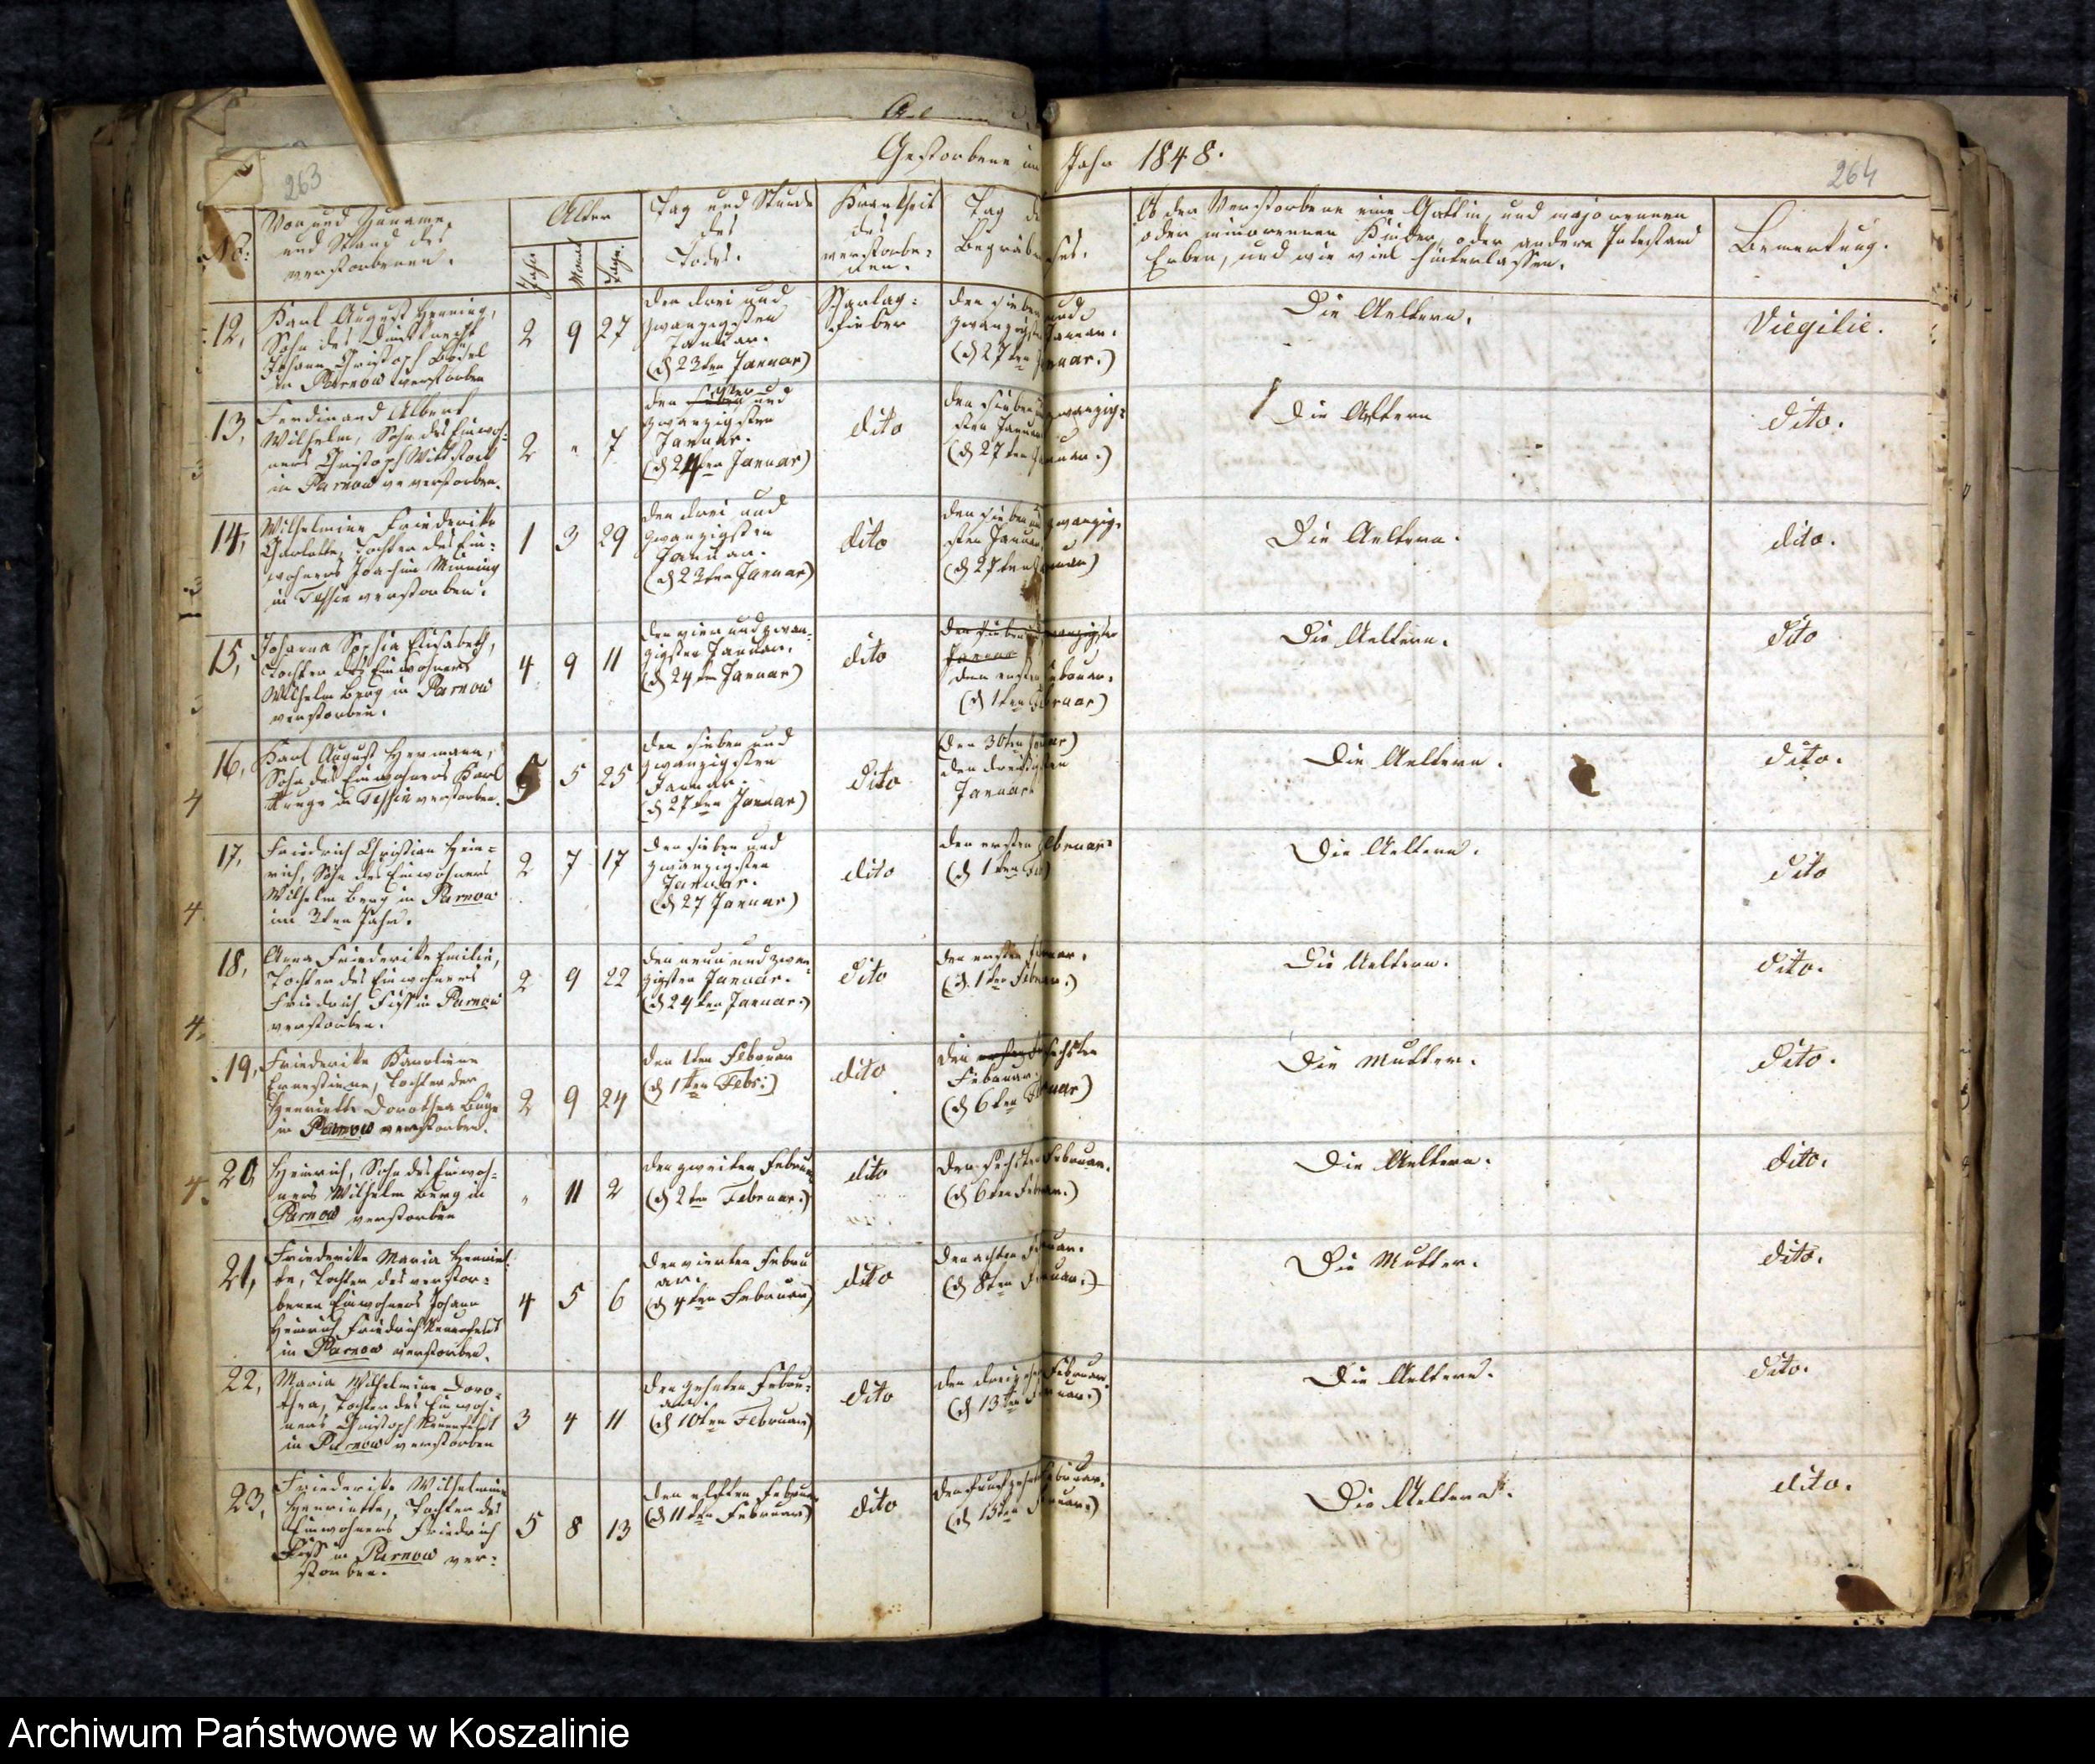 Gestorbene im Jahr 1848.
263
264
No:
Vor und Zuname,
und Stand des
verstorbenen.
Alter
Jahr
Monat
Tage.
Tag und Stunde
des
Todes.
Krankheit
des
verstorbe-
nen.
Tag des
Begräbnisses.
Ob der Verstorbene eine Gattin, und majorennen
oder minorennen Kinder, oder andere Intestand
Erben, und wie viel hinterlassen.
Bemerkung.
12,
Karl August Henning,
Sohn des Dienstknecht
Johann Christoph
in Parnow verstorben
2 9 27
den drei und
zwanzigsten
Januar.
(d 23ten Januar)
Scharlag-
fieber
den sieben und
zwanzigsten Januar.
(d 27ten Januar.)
Die Aeltern.
Viegilie.
13,
Ferdinand Albert
Wilhelm, Sohn des Einwoh-
ners Christoph Wittstock
in Parnow verstorben.
2 " 7
den vier und
zwanzigsten
Januar.
(d 24ten Januar)
dito
den sieben und zwanzig-
sten Januar
(d 27ten Januar.)
Die Aeltern
dito.
14,
Wilhelmine Friederike
Charlotte, Tochter des Ein-
wohners Joachim
in Tessin verstorben.
1 3 29
den drei und
zwanzigsten
Januar.
(d 23ten Januar)
dito
den sieben und zwanzig-
sten Januar
(d 27ten Januar)
Die Aeltern.
dito.
15,
Johanna Sophia Elisabeth,
Tochter des Einwohners
Wilhelm Berg in Parnow
verstorben.
4 9 11
den vier und zwan-
zigsten Januar.
(d 24ten Januar)
dito
den sieben und zwanzigsten
Januar
den ersten Februar.
(d 1ten Februar)
Die Aeltern.
dito
16,
Karl August Hermann,
Sohn des Einwohners Karl
Kruge in Tessin verstorben.
5 25
den sieben und
zwanzigsten
Januar.
(d 27ten Januar)
dito
(den 30ten Januar)
den dreißigsten
Januar
Die Aeltern.
dito.
17,
Friedrich Christian Hein-
rich, Sohn des Einwohners
Wilhelm Berg in Parnow
im 3ten Jahr.
2 7 17
den sieben und
zwanzigsten
Januar.
(d 27 Januar)
dito
den ersten Februar
(d 1ten Feb)
Die Aeltern.
dito
18,
Anna Friederike Emilie,
Tochter des Einwohners
Friedrich in Parnow
verstorben.
2 9 22
den neun und zwan-
zigsten Januar.
(d 24ten Januar.)
dito
den ersten Februar.
(d. 1ten Februar.)
Die Aeltern.
dito.
19,
Friederike Karoline
Ernestine, Tochter der
Henriette Dorothea
in Parnow verstorben.
2 9 24
den 1ten Februar
(d 1ten Febr:)
dito
den ersten sechsten
Februar.
(d 6ten Februar)
Die Mutter.
dito.
20
Heinrich, Sohn des Einwoh-
ners Wilhelm Berg in
Parnow verstorben
" 11 2
den zweiten Februar
(d 2ten Februar.)
dito
den sechsten Februar.
(d 6ten Februar.)
Die Aeltern.
dito.
21,
Friederike Maria Henriet-
te, Tochter des verstor-
benen Einwohners Johann
Heinrich Friedrich Neuenfeldt
in Parnow verstorben.
4 5 6
den vierten Febru
ar.
(d 4ten Februar)
dito
den achten Februar.
(d 8ten Februar.)
Die Mutter.
dito.
22,
Maria Wilhelmine Doro-
thea, Tochter des Einwoh-
ners Christoph Neuenfeldt
in Parnow verstorben
3 4 11
den zehnten Febru-
ar.
(d 10ten Februar)
dito
den dreizehn Februar.
(d 13ten Februar.)
Die Aeltern.
dito.
23,
Friederike Wilhelmine
Henriette, Tochter des
Einwohners Friedrich
in Parnow ver-
storben.
5 8 13
den elften Februar
(d 11ten Februar)
dito
den fünfzehn Februar.
(d 15ten Februar.)
Die Aeltern.
dito.
Archiwum Państwowe w Koszalinie